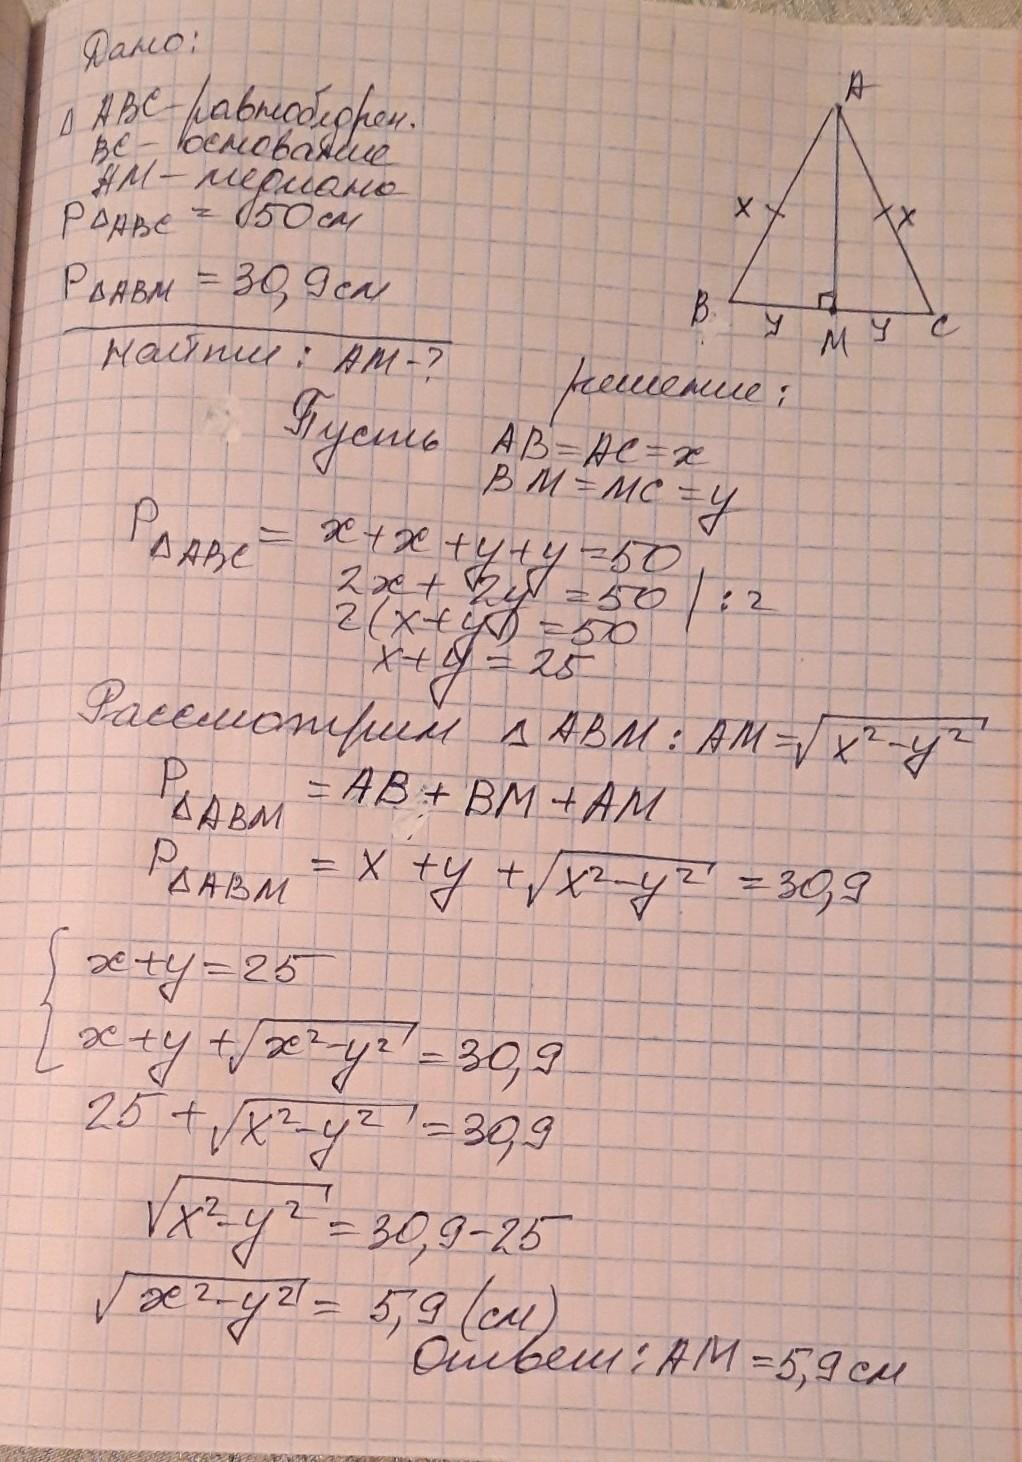 Дано:
Δ ABC - равнобедрен.
BC - основание
AM - медиана
PΔABC = 50 см
PΔABM = 30,9 см
Найти: AM - ?
A
x x
B y M y C
решение:
Пусть AB = AC = x
BM = MC = y
PΔABC = x + x + y + y = 50
2x + 2y = 50 | : 2
2(x + y) = 50
x + y = 25
Рассмотрим Δ ABM: AM = √(x² - y²)
PΔABM = AB + BM + AM
PΔABM = x + y + √(x² - y²) = 30,9
{ x + y = 25
x + y + √(x² - y²) = 30,9
25 + √(x² - y²) = 30,9
√(x² - y²) = 30,9 - 25
√(x² - y²) = 5,9 (см)
Ответ: AM = 5,9 см